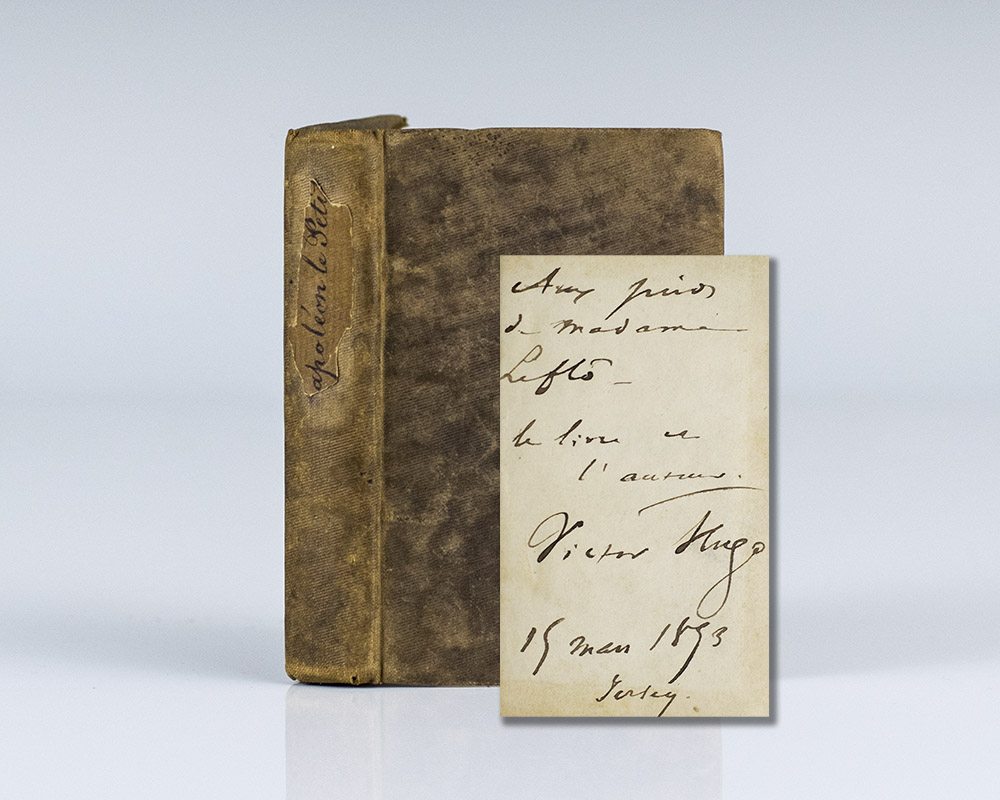 apoléon le Petit
Aux pieds
de madame
Leflô –
le livre et
l'auteur.
Victor Hugo
15 mars 1853
Jersey.